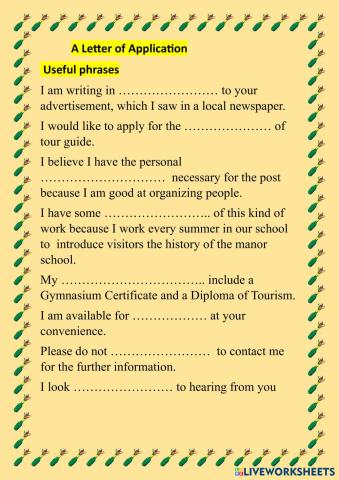 A Letter of Application
Useful phrases
I am writing in …………………… to your
advertisement, which I saw in a local newspaper.
I would like to apply for the ………………… of
tour guide.
I believe I have the personal
………………………… necessary for the post
because I am good at organizing people.
I have some …………………….. of this kind of
work because I work every summer in our school
to introduce visitors the history of the manor
school.
My …………………………….. include a
Gymnasium Certificate and a Diploma of Tourism.
I am available for ……………… at your
convenience.
Please do not …………………… to contact me
for the further information.
I look …………………… to hearing from you
LIVEWORKSHEETS